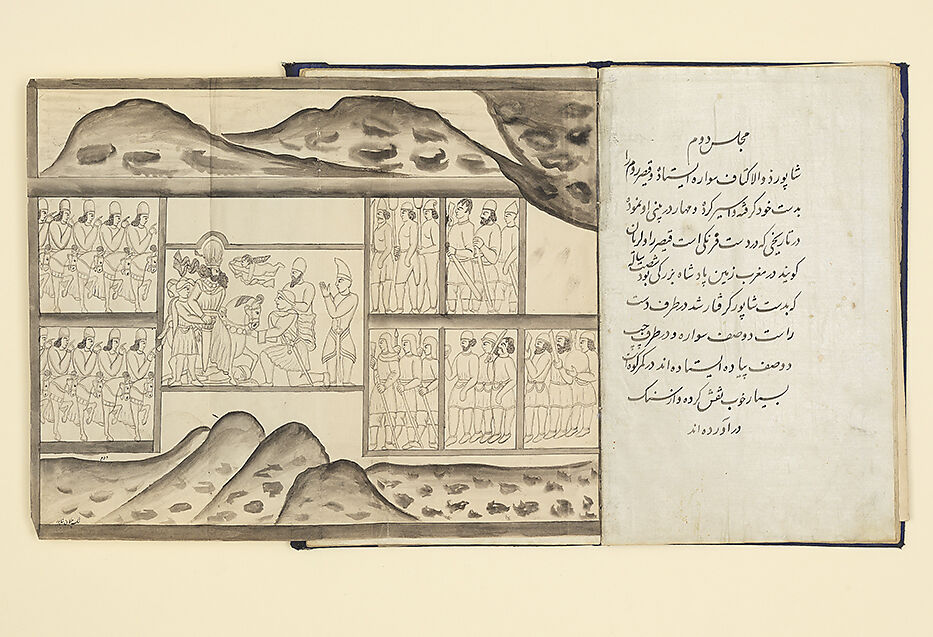 مجلس دوم
شاپور ذوالاکتاف سواره ایستاده و قیصر روم را
بدست خود گرفته و اسیر کرده و مهار در بینی او نموده
در تاریخی که در دست فرنگی است قیصر را ولریان
گویند در مغرب زمین پادشاه بزرگی بود شصت ساله
که بدست شاپور گرفتار شد در طرف دست
راست دو صف سواره و در طرف چپ
دو صف پیاده ایستاده اند در کمر کوه
بسیار خوب نقش کرده و از سنگ
در آورده اند